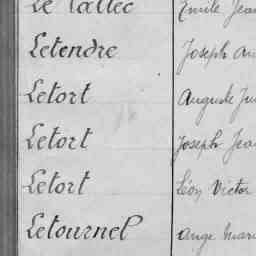 Le Tallec Emile Jean
Letendre Joseph
Letort Auguste
Letort Joseph Jean
Letort Léon Victor
Letournel Ange Mari